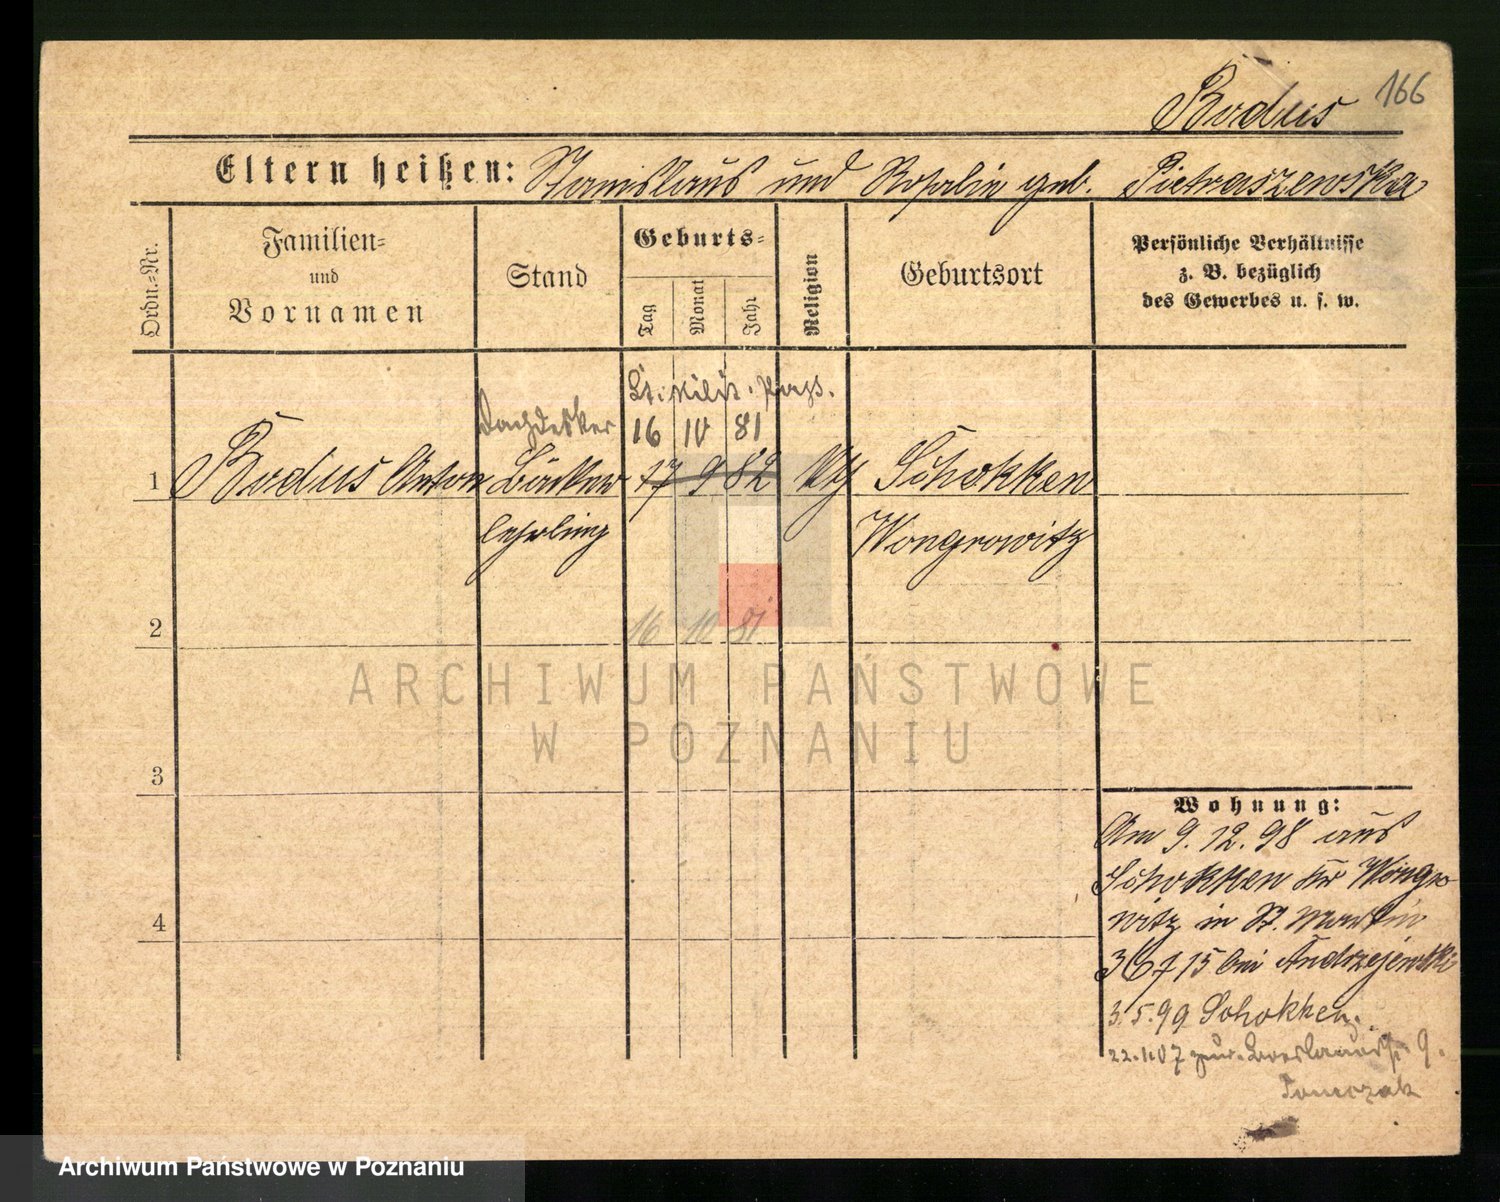 166
Bodus
Eltern heißen: Stanislaus und Rosalie geb. Pietraszewska
Ordn.=Nr.
Familien=
und
Vornamen
Stand
Geburts=
Tag
Monat
Jahr
Religion
Geburtsort
Persönliche Verhältnisse
z. B. bezüglich
des Gewerbes u. s. w.
Lt. Milit.
Dachdecker 16 10 81
1 Bodus Anton Bäcker 17 9 82 kth Schokken
lehrling Wongrowitz
2 16 10 81
ARCHIWUM PAŃSTWOWE
W POZNANIU
3
4
Wohnung:
Am 9.12.98 aus
Schokken Kr Wongro
witz in St. Martin
367 15 bei Andrzejewski
3.5.99 Schokken.
22.1.07 zur. Breslauerstr. 9.
Tomczak
Archiwum Państwowe w Poznaniu